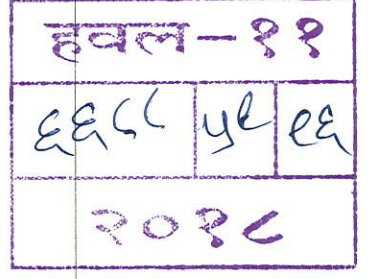 हवल-११
६६८८ ५९ ९६
२०१८